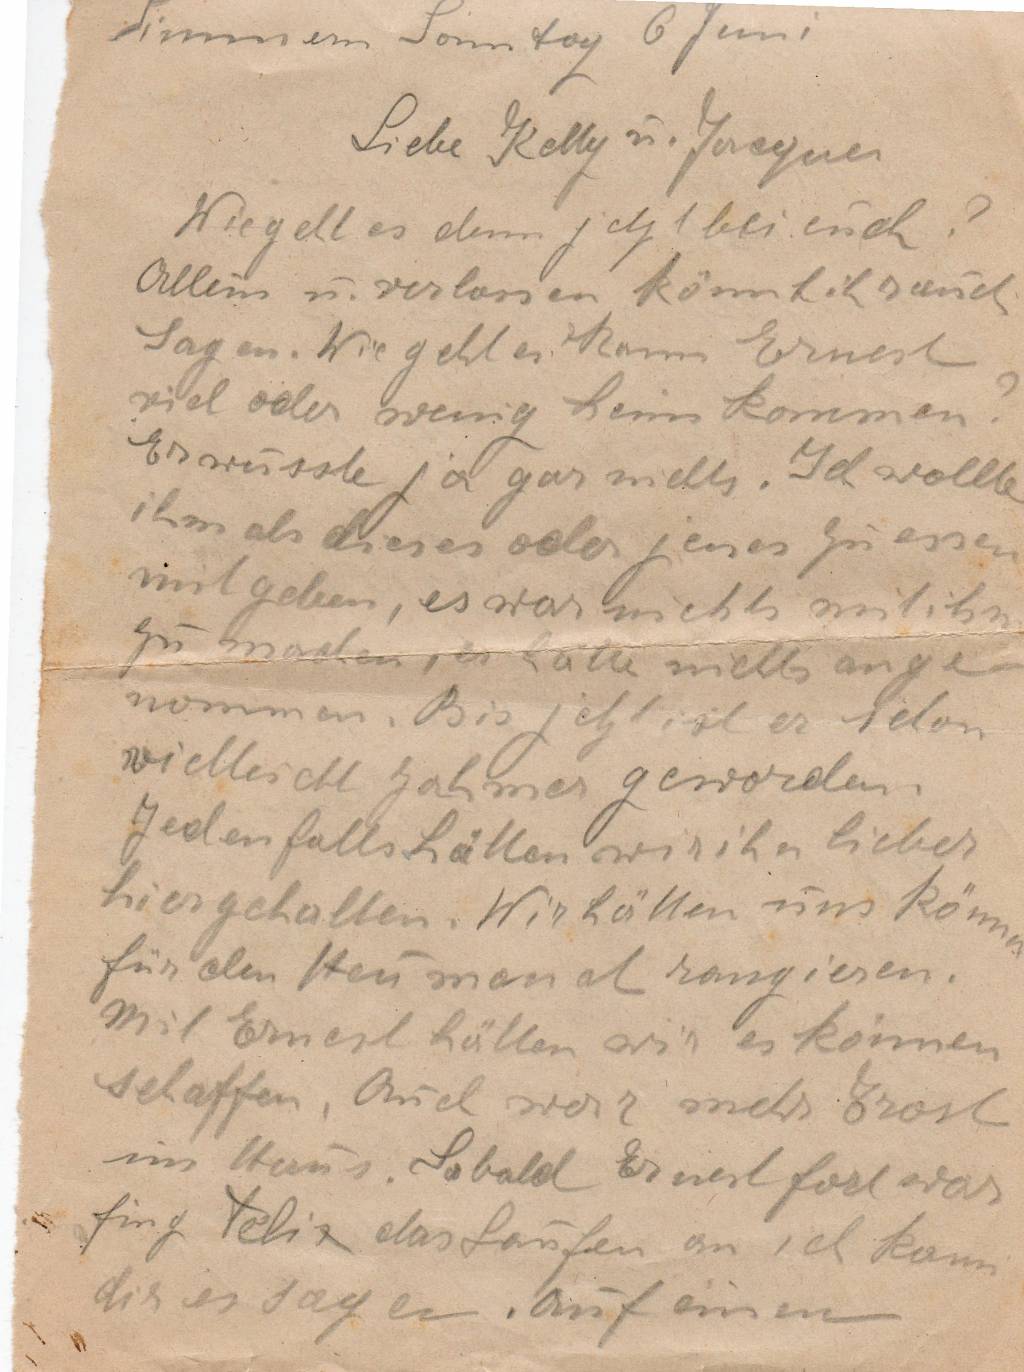 Simmern Sonntag 6 Juni
Liebe Ketty u. Jacques
Wie geht es denn jetzt bei euch?
Allein u. verlassen könnt ihr auch
sagen. Wie geht es kann Ernest
viel oder wenig heim kommen?
Er wusste ja gar nichts. Ich wollte
ihm als dieses oder jenes zu essen
mitgeben, es war nichts mit ihm
zu machen, er hätte nichts ange
nommen. Bis jetzt ist er schon
vielleicht zahmer geworden.
Jedenfalls hätten wir ihn lieber
hiergehalten. Wir hätten uns können
für den Heumonat rangieren.
Mit Ernest hätten wir es können
schaffen, Auch war mehr Trost
im Haus. Sobald Ernest fort war
fing Felix das Laufen an ich kann
dir es sagen. Auf einen